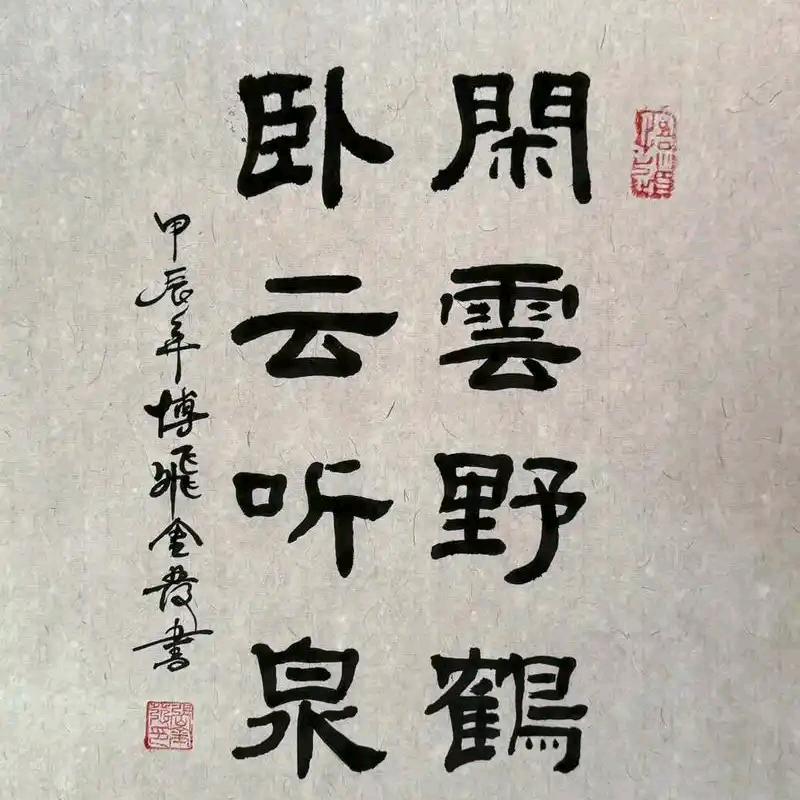 閑雲野鶴
卧云听泉
甲辰年博飛書